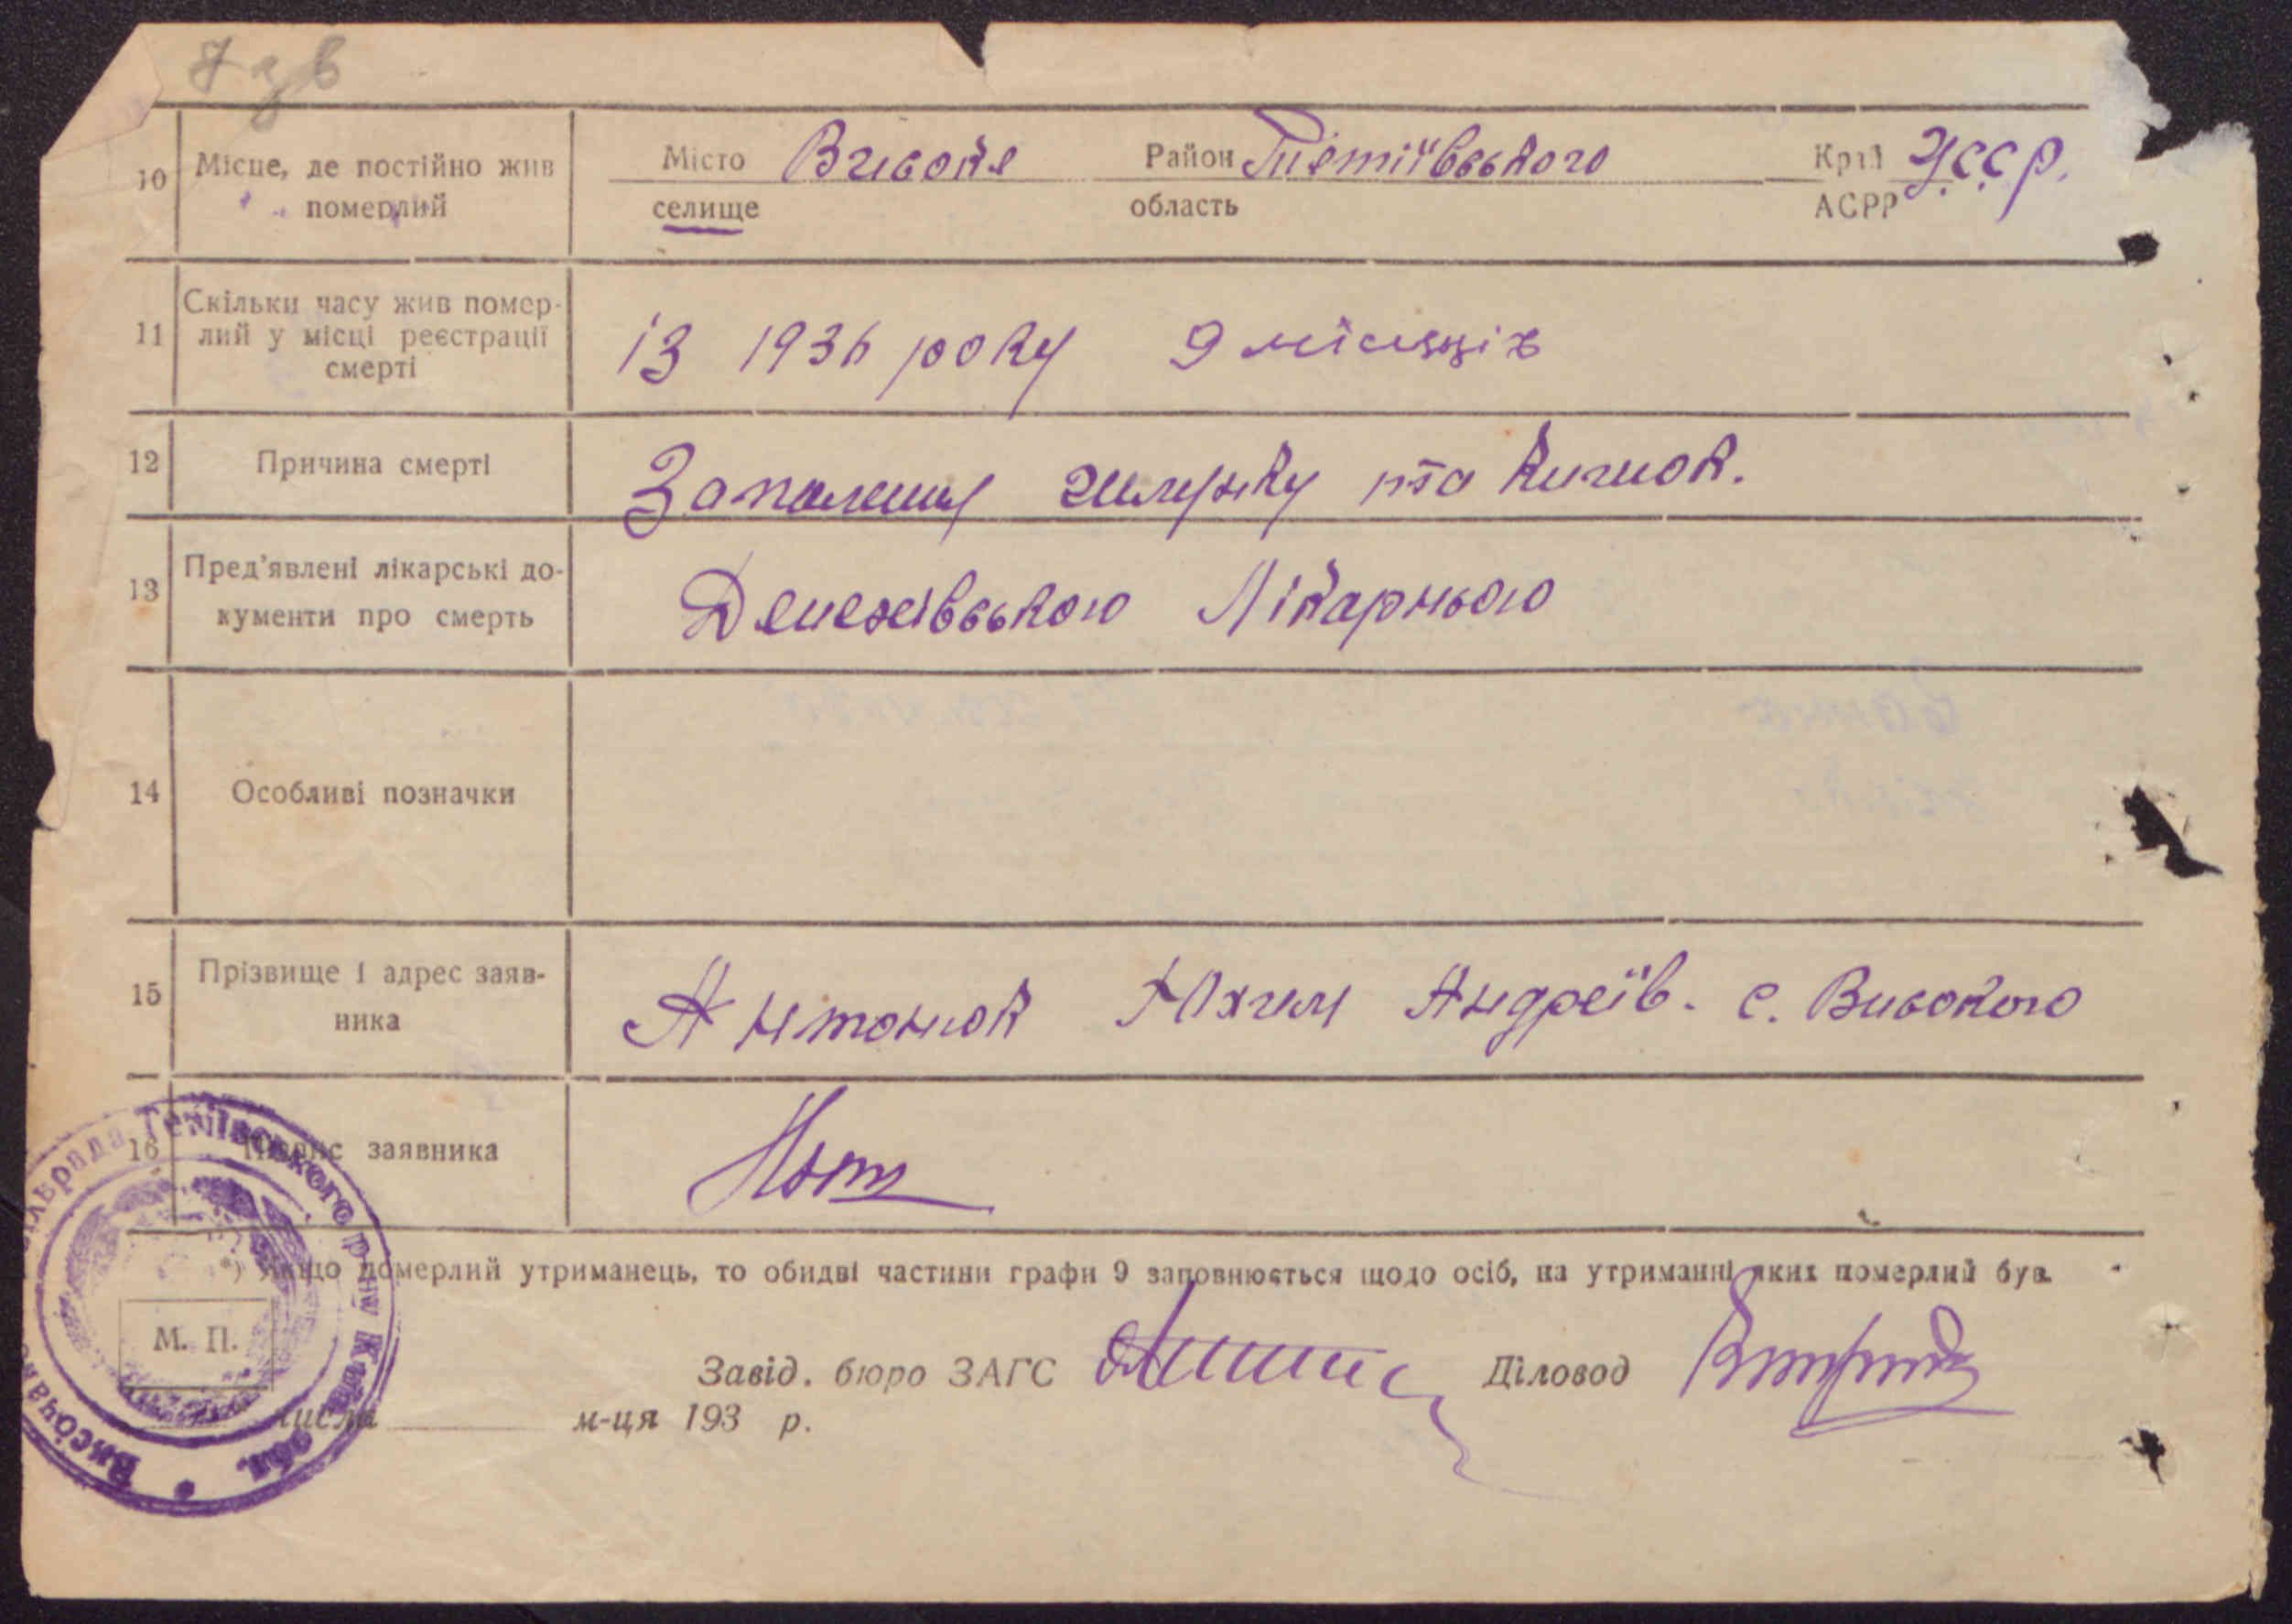 7 зв
10 Місце, де постійно жив померлий
Місто Високе Район Тетіївського Край УССР.
селище область АСРР
11 Скільки часу жив помер-
лий у місці реєстрації
смерті
із 1936 року 9 місяців
12 Причина смерті
Запалення шлунку та кишок.
13 Пред'явлені лікарські до-
кументи про смерть
Денежівською Лікарнею
14 Особливі позначки
15 Прізвище і адрес заяв-
ника
Антонюк Юхим Андреїв. с. Високого
16 Підпис заявника
*) Якщо померлий утриманець, то обидві частини графи 9 заповнюється щодо осіб, на утриманні яких померлий був.
М. П.
Завід. бюро ЗАГС Діловод
числа м-ця 193 р.
сільрада Тетіївського р-ну Київ обл.